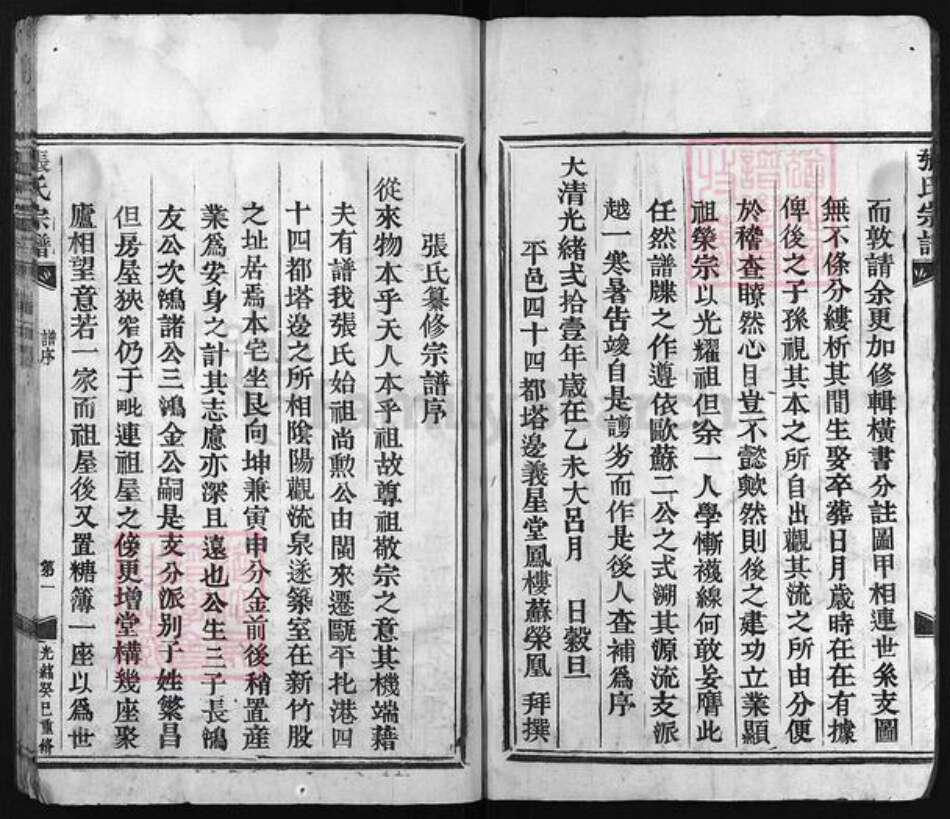 張氏宗譜
而敦請余更加修輯橫書分註圖甲相連世系支圖
無不條分縷析其間生娶卒葬日月歲時在在有據
俾後之子孫視其本之所自出觀其流之所由分便
於稽查瞭然心目豈不懿歟然則後之建功立業顯
祖榮宗以光耀祖但余一人學慚襪線何敢妄膺此
任然譜牒之作遵依歐蘇二公之式溯其源流支派
越一寒暑告竣自是謭劣而作是後人查補為序
大清光緒弍拾壹年歲在乙未大呂月 日穀旦
平邑四十四都塔邊義星堂鳳樓蘇榮凰 拜撰
張氏纂修宗譜序
從來物本乎天人本乎祖故尊祖敬宗之意其機端藉
夫有譜我張氏始祖尚勲公由閩來遷甌平北港四
十四都塔邊之所相陰陽觀流泉遂築室在新竹股
之址居焉本宅坐艮向坤兼寅申分金前後稍置產
業為安身之計其志慮亦深且遠也公生三子長鴻
友公次鴻諸公三鴻金公嗣是支分派別子姓繁昌
但房屋狹窄仍于毗連祖屋之傍更增堂構幾座聚
廬相望意若一家而祖屋後又置糖簿一座以為世
張氏宗譜
譜序
第一
光緒癸巳重修